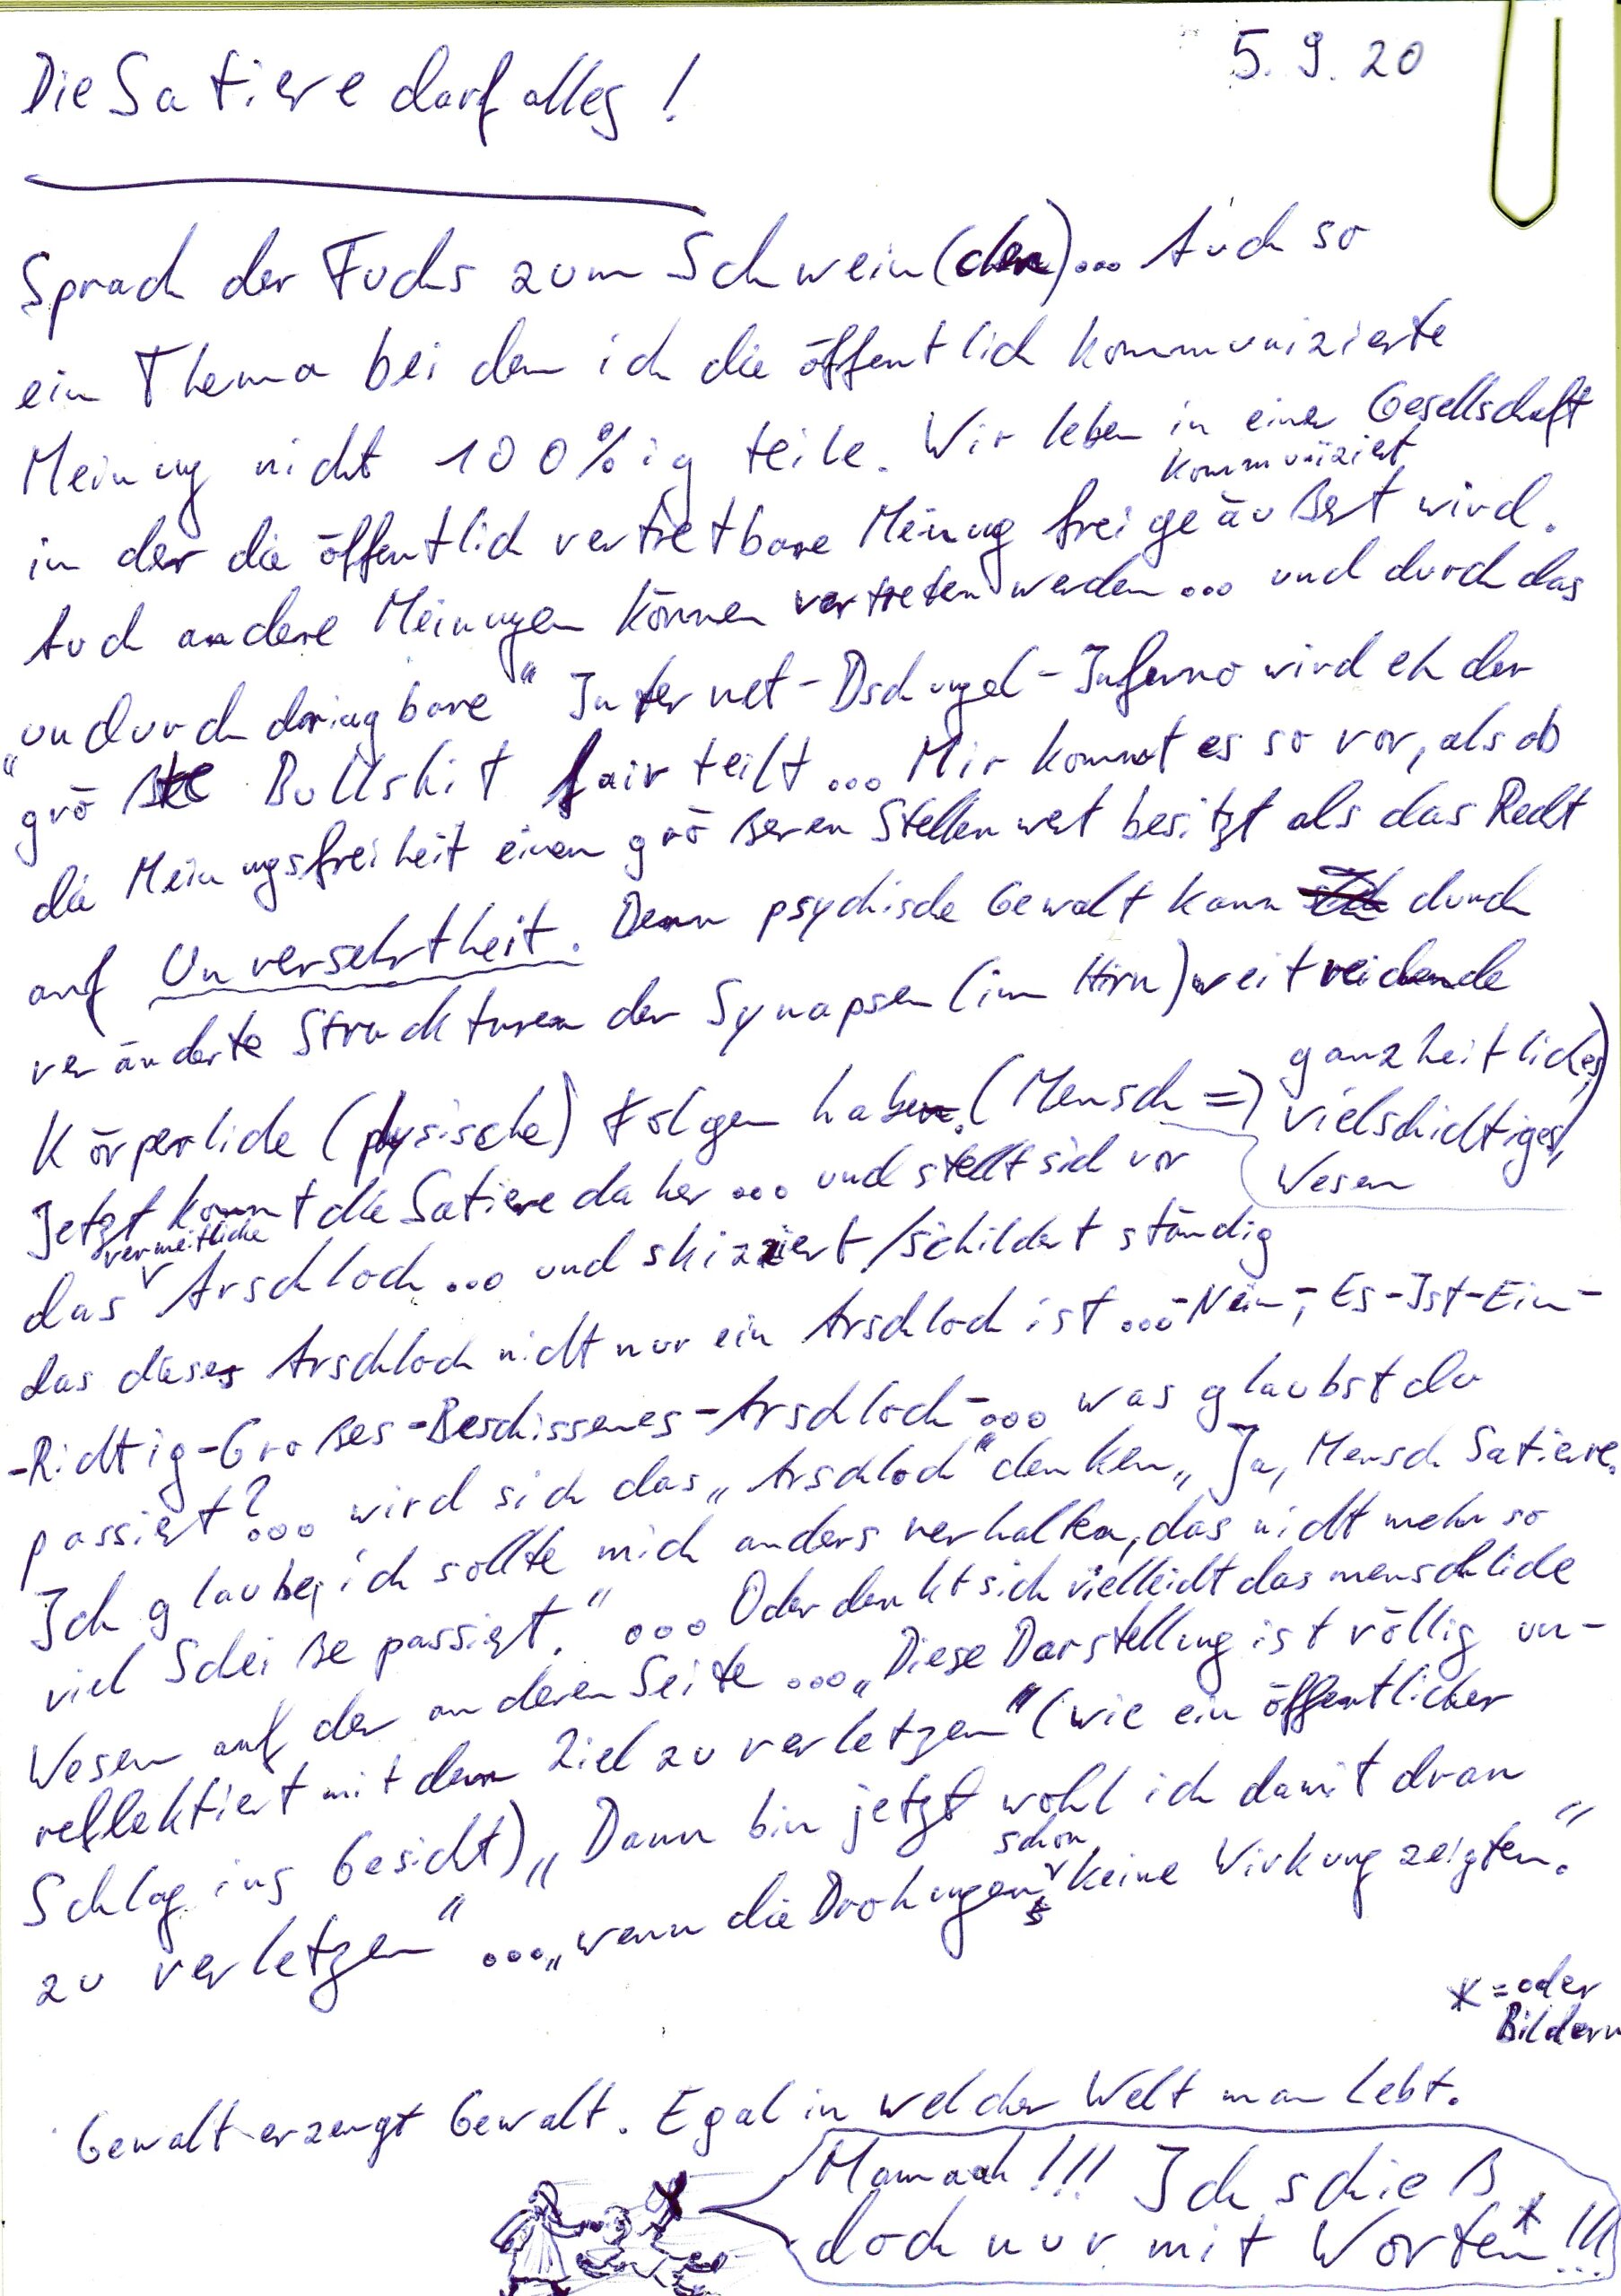 5.9.20
Die Satiere darf alles!
Sprach der Fuchs zum Schwein(chen)... Auch so
ein Thema bei dem ich die öffentlich kommunizierte
Meinung nicht 100%ig teile. Wir leben in einer Gesellschaft
kommuniziert
in der die öffentlich vertretbare Meinung frei geäußert wird.
Auch andere Meinungen können vertreten werden... und durch das
„undurchdringbare" Internet-Dschungel-Inferno wird eh der
größte Bullshit fair teilt... Mir kommt es so vor, als ob
die Meinungsfreiheit einen größeren Stellenwert besitzt als das Recht
auf Unversehrtheit. Denn psychische Gewalt kann durch
veränderte Struckturen der Synapsen (im Hirn) weitreichende
Körperliche (physische) Folgen haben. (Mensch => ganzheitliches,
vielschichtiges,
Wesen)
Jetzt kommt die Satiere daher... und stellt sich vor
vermeitliche
das Arschloch... und skizziert/schildert ständig
das dieses Arschloch nicht nur ein Arschloch ist...-Nein-, Es-Ist-Ein-
-Richtig-Großes-Beschissenes-Arschloch-... was glaubst du
passiert?... wird sich das „Arschloch" denken „Ja, Mensch Satiere.
Ich glaube, ich sollte mich anders verhalten, das nicht mehr so
viel Scheiße passiert."... Oder denkt sich vielleicht das menschliche
Wesen auf der anderen Seite...„Diese Darstellung ist völlig un-
reflektiert mit dem Ziel zu verletzen" (wie ein öffentlicher
Schlag ins Gesicht) „Dann bin jetzt wohl ich damit dran
zu verletzen"...„wenn die Drohungen schon keine Wirkung zeigten."
* = oder
Bildern
Gewalt erzeugt Gewalt. Egal in welcher Welt man lebt.
Mamaah!!! Ich schieß
doch nur mit Worten*!!!